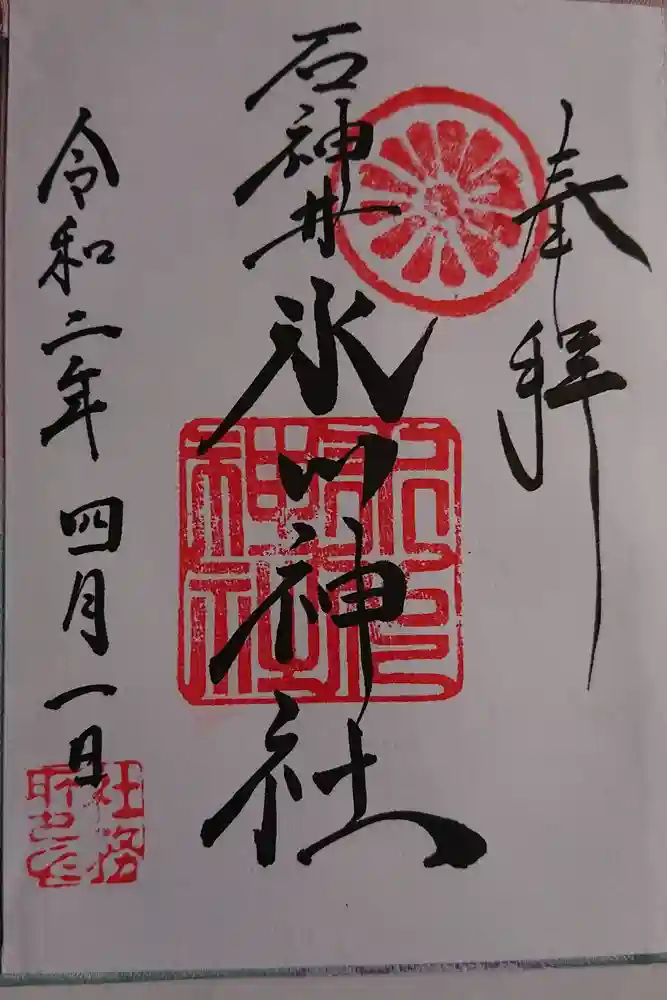 奉拝
石神井氷川神社
令和二年四月一日